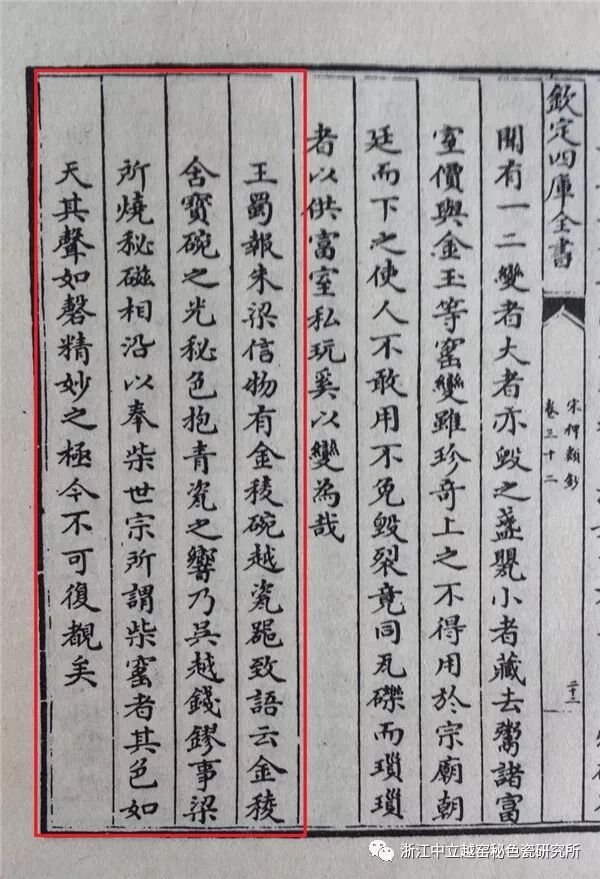 欽定四庫全書
宋稗類鈔
卷三十二
二十二
開有一二變者大者亦毀之盞甖小者藏去鬻諸富
室價與金玉等窰變雖珍奇上之不得用於宗廟朝
廷而下之使人不敢用不免毀裂竟同瓦礫而瑣瑣
者以供富室私玩奚以變為哉
王蜀報朱梁信物有金稜碗越瓷噐致語云金稜
含寶碗之光秘色抱青瓷之響乃吳越錢鏐事梁
所燒秘磁相沿以奉柴世宗所謂柴窰者其色如
天其聲如磬精妙之極今不可復覩矣
浙江中立越窑秘色瓷研究所